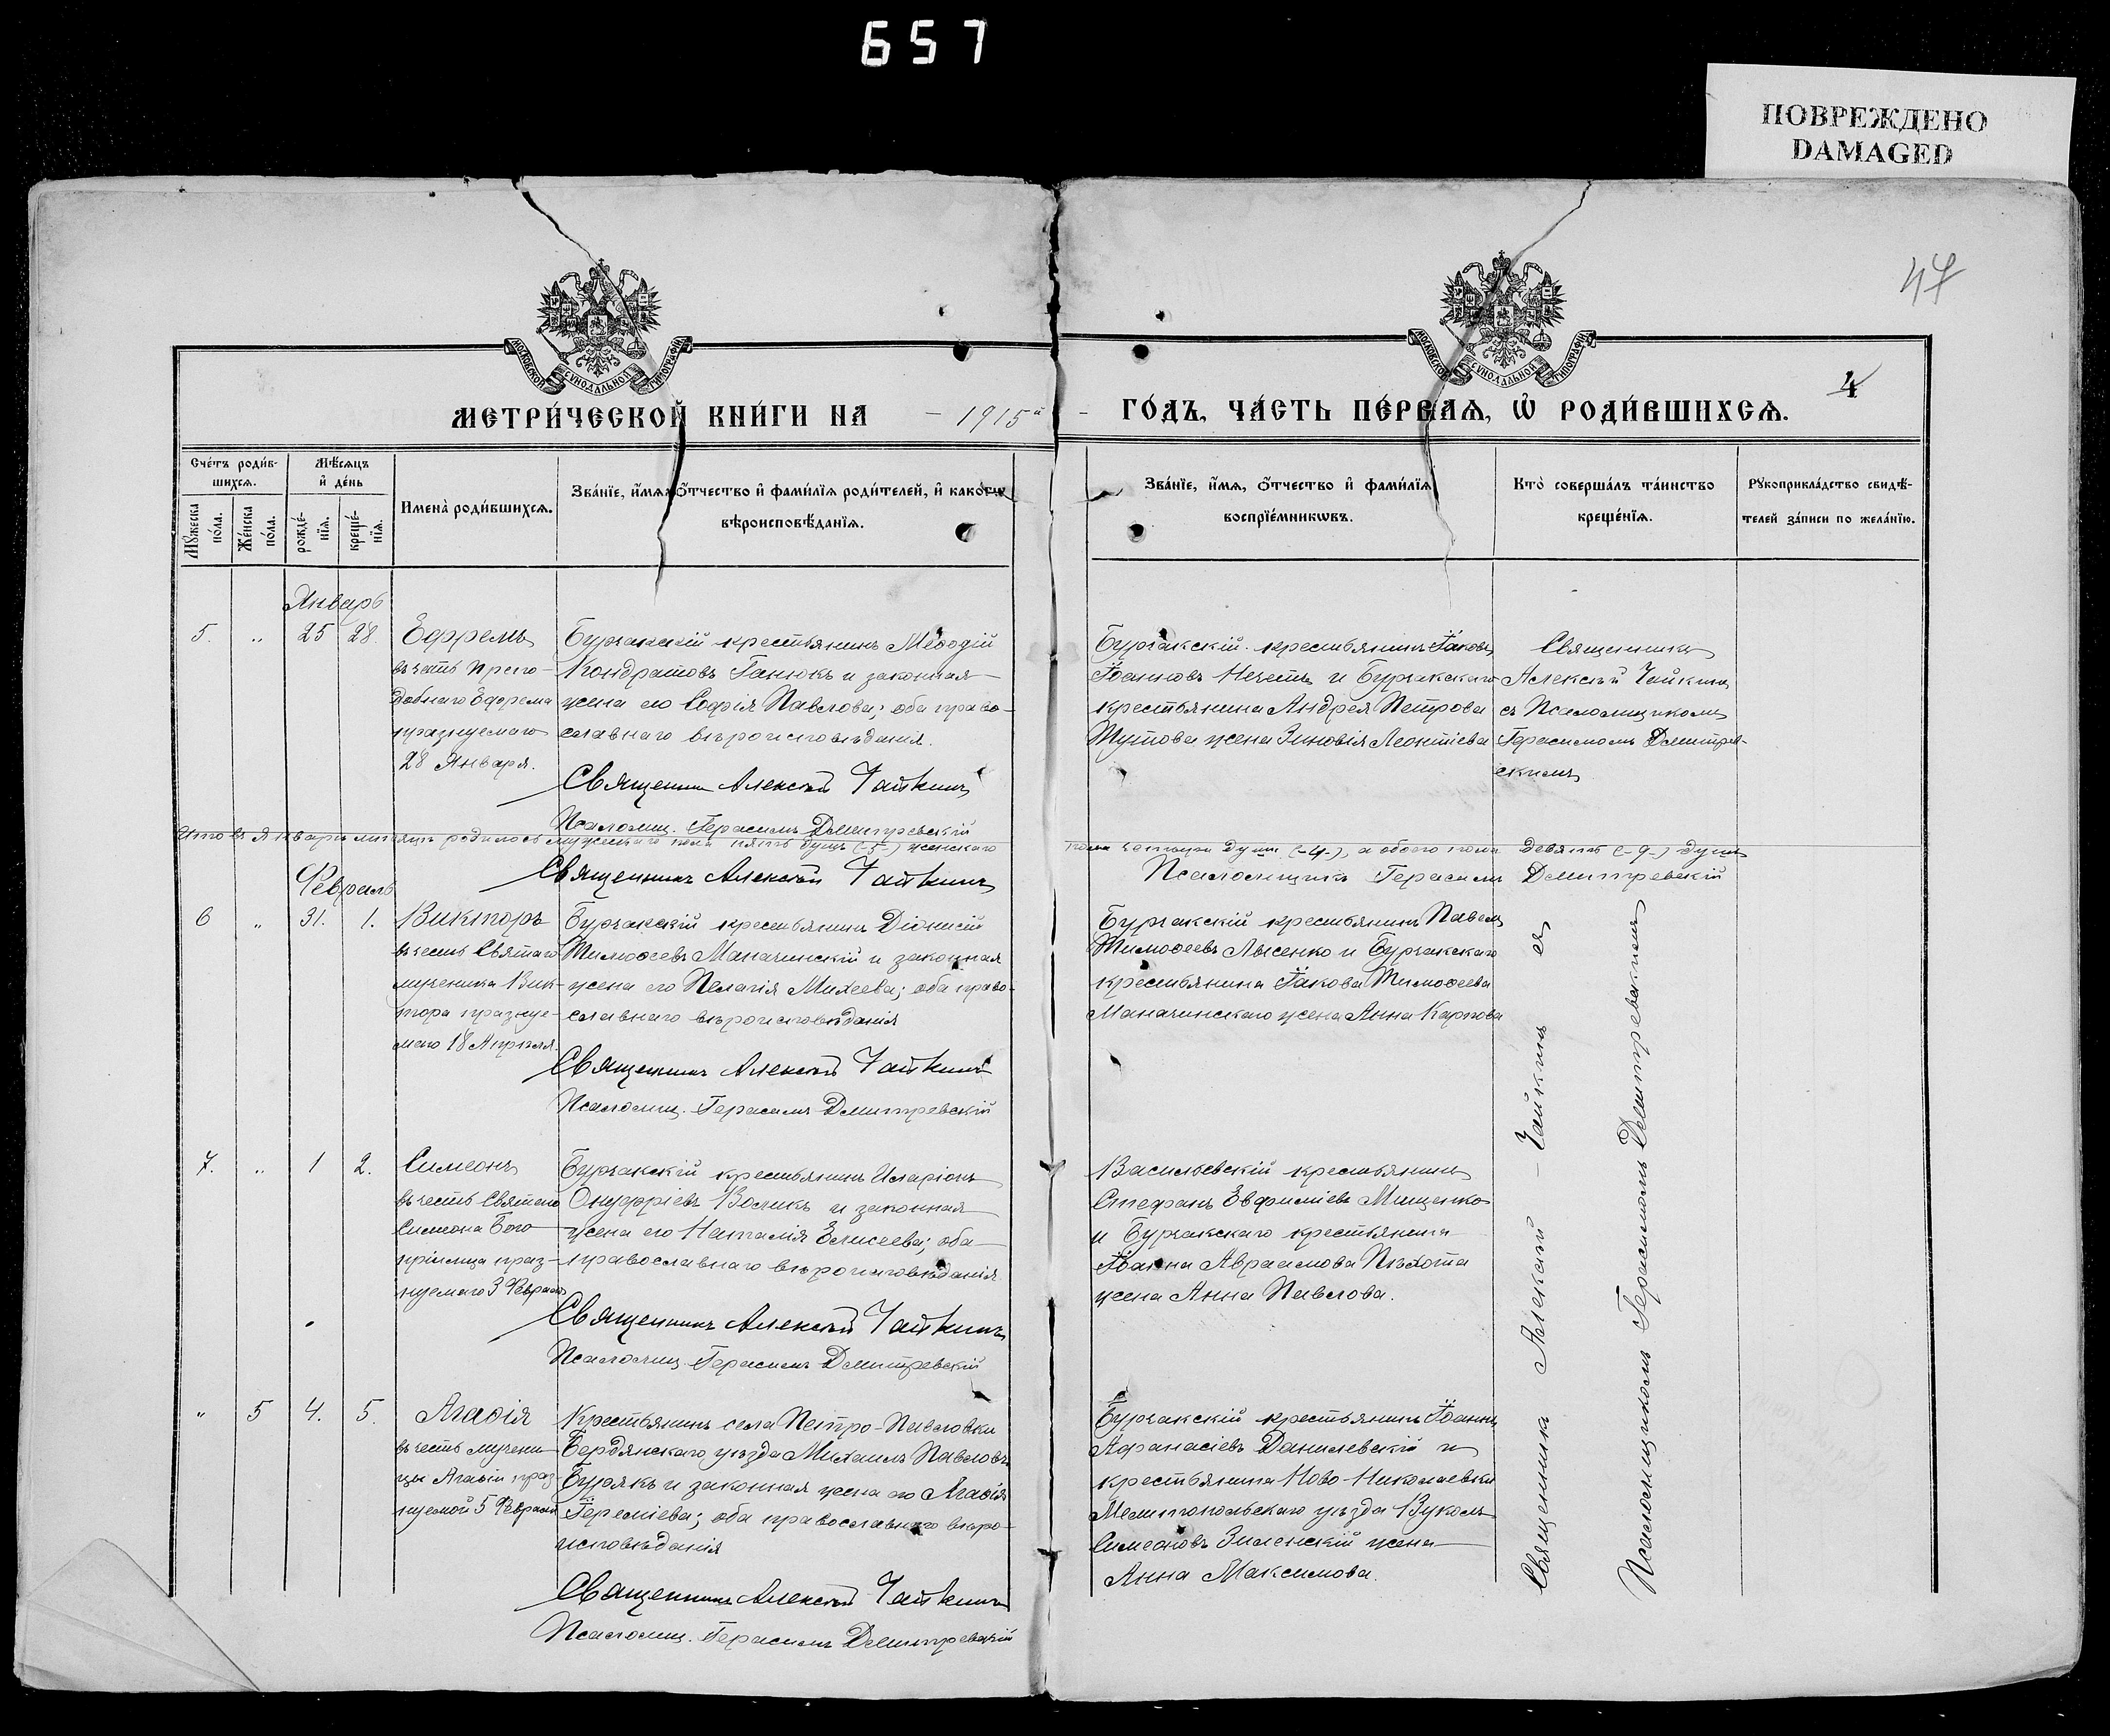 657
ПОВРЕЖДЕНО
DAMAGED
47
4
МОСКОВСКОЙ СѴНОДАЛЬНОЙ ТИПОГРАФІИ
МОСКОВСКОЙ СѴНОДАЛЬНОЙ ТИПОГРАФІИ
МЕТРИ́ЧЕСКОЙ КНИ́ГИ НА – 1915й – ГО́ДЪ, ЧА́СТЬ ПЕ́РВАѦ, Ѡ҆ РОДИ́ВШИХСѦ.
Сче́тъ роди́в-
шихсѧ.
Мꙋжеска по́ла.
Же́нска по́ла.
Мѣ́сѧцъ
и҆ де́нь
рожде́-
нїѧ.
креще́-
нїѧ.
Имена̀ роди́вшихсѧ.
Зва́нїе, и҆́мѧ, ѻ҆́тчество и҆ фами́лїѧ роди́телей, и҆ како́гѡ
вѣроисповѣ́данїѧ.
Зва́нїе, и҆́мѧ, ѻ҆́тчество и҆ фами́лїѧ
воспрїе́мникѡвъ.
Кто̀ соверша́лъ та́инство
креще́нїѧ.
Рꙋкоприкла́дство свидѣ́-
телей за́писи по жела́нїю.
Январь
5. „ 25 28.
Ефремъ
въ честь препо-
добнаго Ефрема
празднуемаго
28 Января.
Бурчакскій крестьянинъ Меѳодій
Кондратовъ Ганюкъ и законная
жена его Софія Павлова; оба право-
славнаго вѣроисповѣданія.
Священникъ Алексѣй Чайкинъ
Псаломщ. Герасимъ Дмитревскій
Бурчакскій крестьянинъ Іаковъ
Іоанновъ Нечетъ и Бурчакскаго
крестьянина Андрея Петрова
Шутова жена Зиновія Леонтіева
Священникъ
Алексѣй Чайкинъ
съ Псаломщикомъ
Герасимомъ Дмитрев-
скимъ
Итого въ Январѣ мѣсяцѣ родилось мужескаго пола пять душъ (-5-) женскаго
пола четыре души (-4-), а обоего пола девять (-9-) душъ
Священникъ Алексѣй Чайкинъ
Псаломщикъ Герасимъ Дмитревскій
Февраль
6 „ 31. 1.
Викторъ
въ честь Святаго
мученика Вик-
тора праздну-
маго 18 Апрѣля.
Бурчакскій крестьянинъ Діонисій
Тимоѳеевъ Маначинскій и законная
жена его Пелагія Михеева; оба право-
славнаго вѣроисповѣданія
Священникъ Алексѣй Чайкинъ
Псаломщ. Герасимъ Дмитревскій
Бурчакскій крестьянинъ Павелъ
Тимоѳеевъ Лысенко и Бурчакскаго
крестьянина Іакова Тимоѳеева
Маначинскаго жена Анна Карпова
7. „ 1 2.
Симеонъ
въ честь Святаго
Симеона Бого-
пріимца праз-
нуемаго 3 Февраля
Бурчакскій крестьянинъ Иларіонъ
Онуфріевъ Воликъ и законная
жена его Наталія Елисеева; оба
православнаго вѣроисповѣданія
Священникъ Алексѣй Чайкинъ
Псаломщ. Герасимъ Дмитревскій
Васильевскій крестьянинъ
Стефанъ Евфиміевъ Мищенко
и Бурчакскаго крестьянина
Іоанна Авраамова Пѣхота
жена Анна Павлова.
„ 5 4. 5.
Агаѳія
въ честь мучени-
цы Агаѳіи праз-
нуемой 5 Февраля
Крестьянинъ села Петро-Павловки
Бердянскаго уѣзда Михаилъ Павловъ
Бурякъ и законная жена его Агаѳія
Іереміева; оба православнаго вѣро-
исповѣданія
Священникъ Алексѣй Чайкинъ
Псаломщ. Герасимъ Дмитревскій
Бурчакскій крестьянинъ Іоаннъ
Афанасіевъ Данилевскій и
крестьянина Ново-Николаевки
Мелитопольскаго уѣзда Вуколъ
Симеоновъ Зиленскій жена
Анна Максимова.
Священникъ Алексѣй – Чайкинъ съ
Псаломщикомъ Герасимомъ Дмитревскимъ